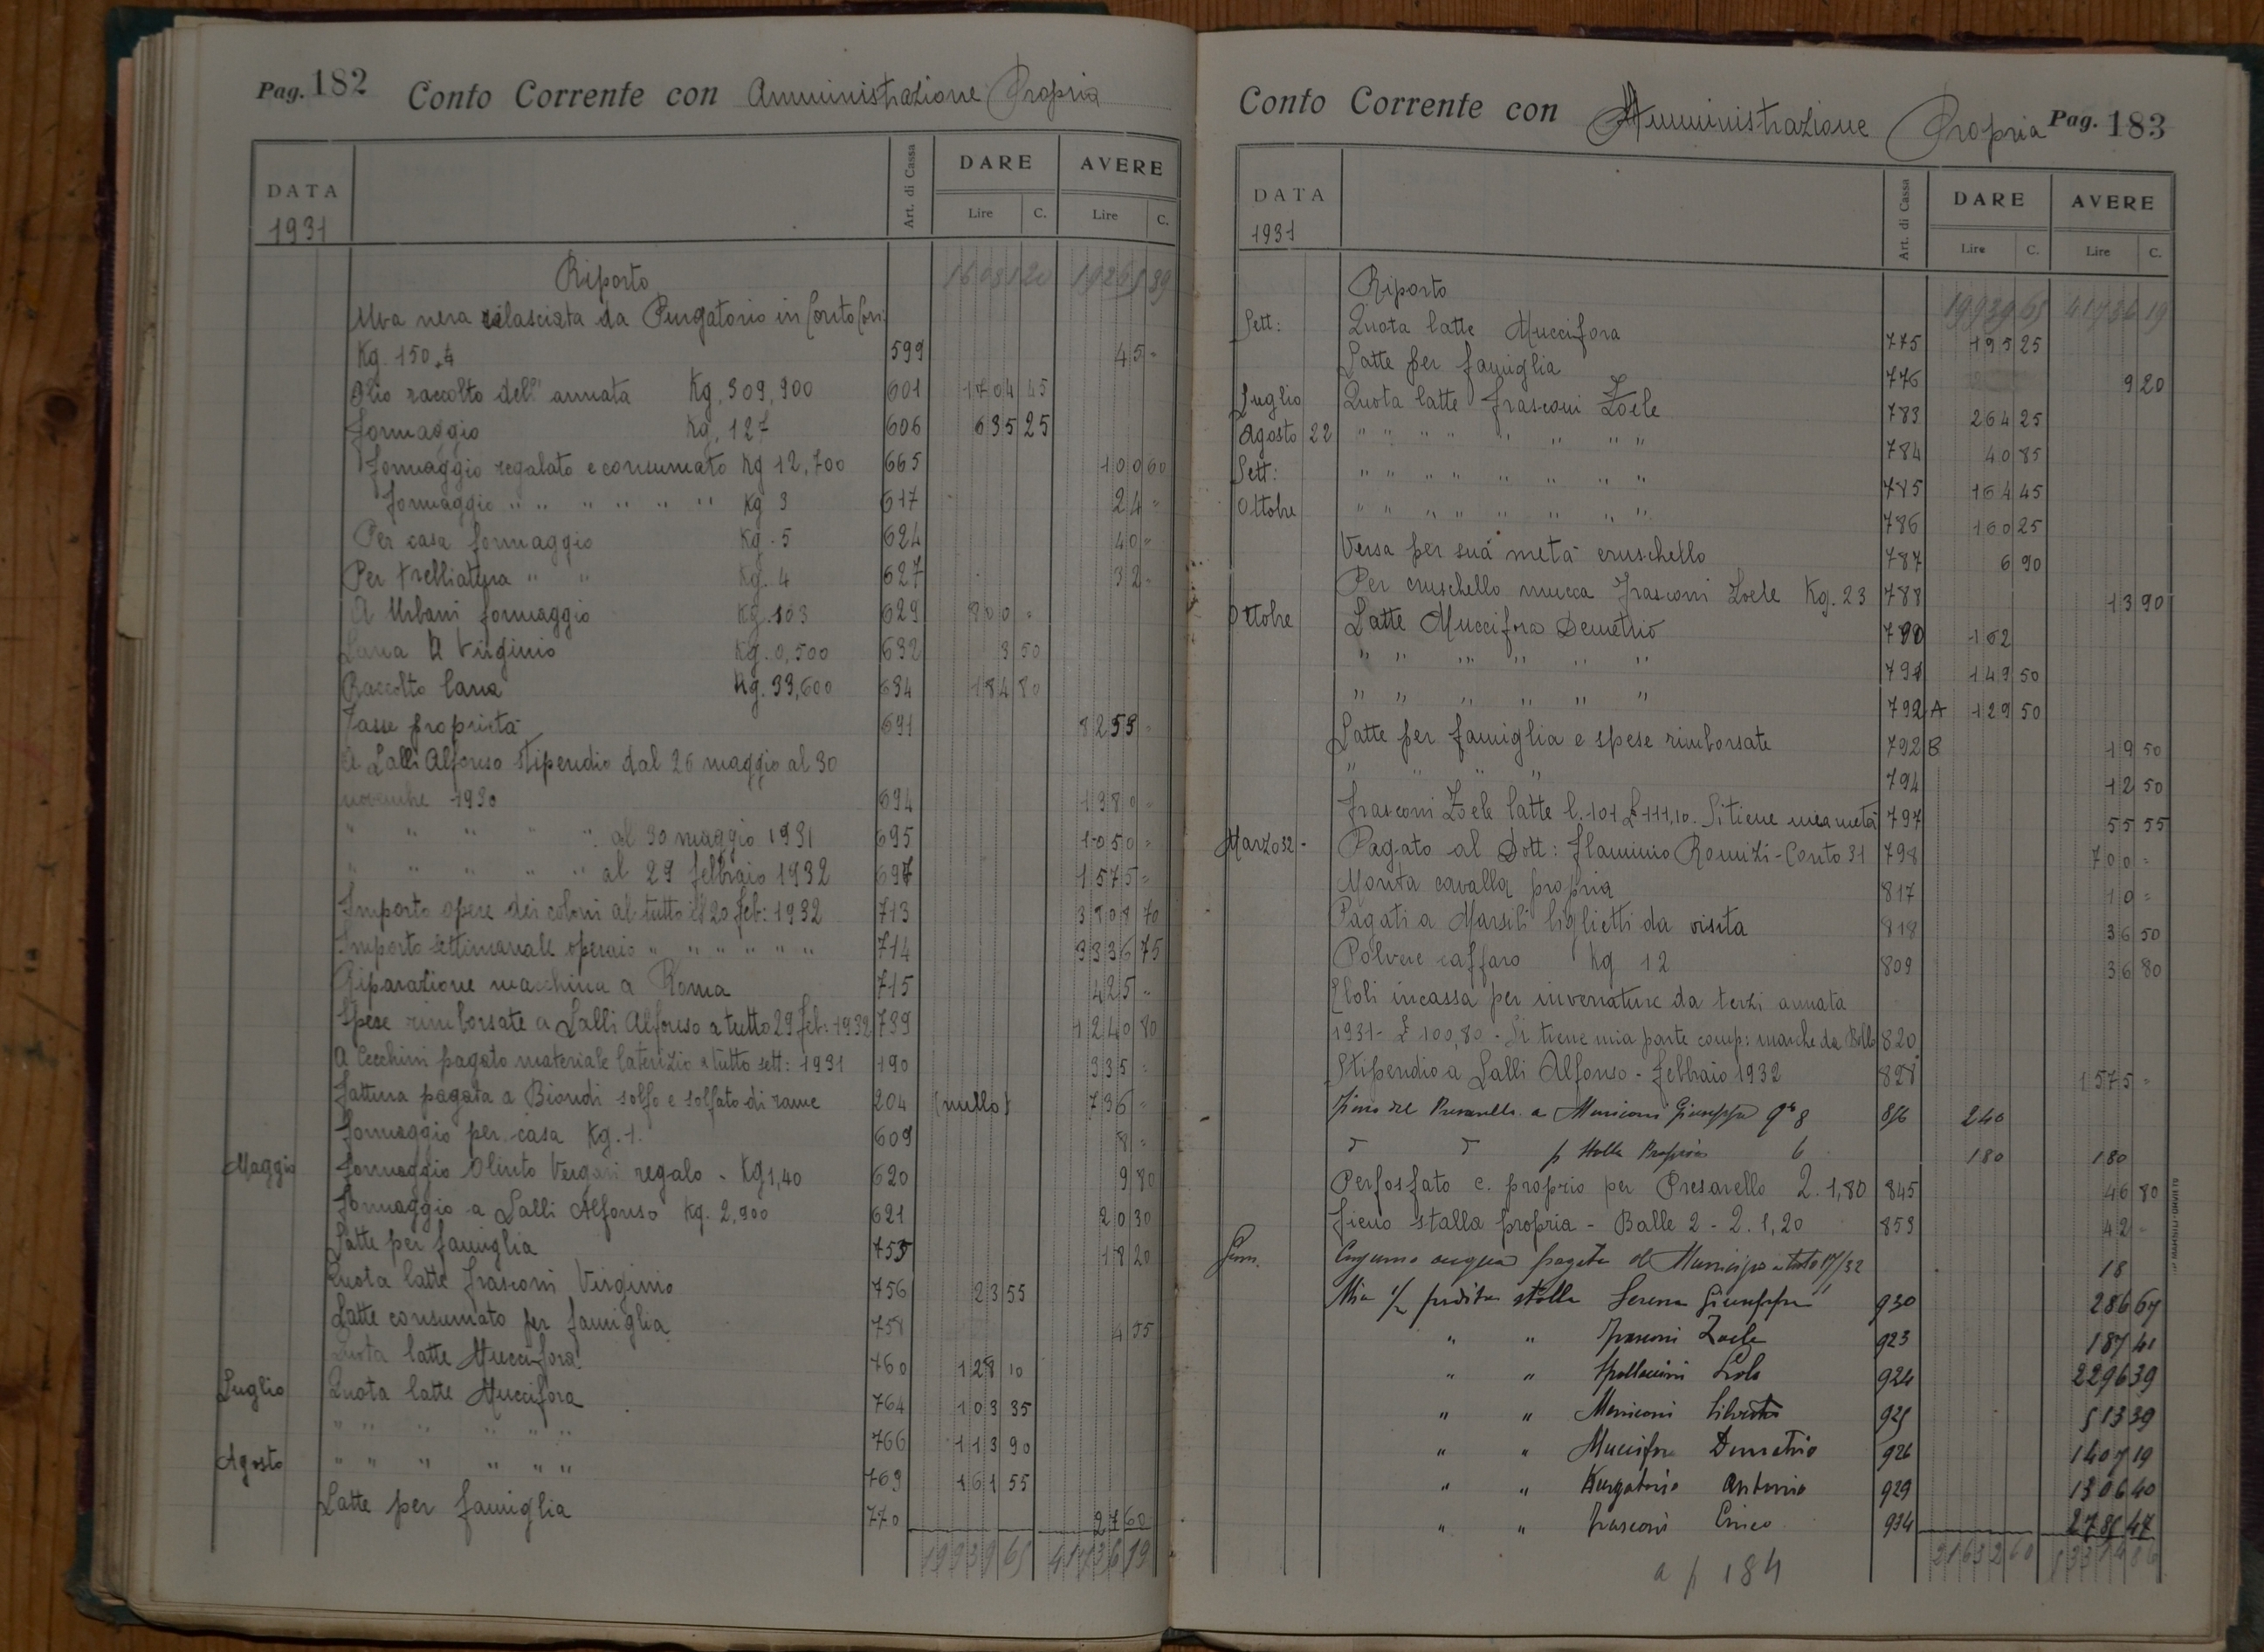 Pag. 182 Conto Corrente con Amministrazione Propria
DATA 1931 Art. di Cassa DARE AVERE
Lire C. Lire C.
Riporto 19265 89
Uva nera rilasciata da Purgatorio in Conto Corr.
Kg. 150,4 599 45 "
Olio raccolto dell' annata Kg. 309,900 601 1704 45
formaggio Kg. 127 606 635 25
formaggio regalato e consumato Kg 12,700 665 100 60
formaggio " " " " " " Kg 3 617 24 "
Per casa formaggio Kg. 5 624 40 "
Per trebbiatura " " Kg. 4 627 32 "
A Urbani formaggio Kg. 103 629 800 "
Lana A Virginio Kg. 0,500 632 3 50
Raccolto lana Kg. 33,600 634 184 80
Tasse proprietà 691 8259 "
A Lalli Alfonso stipendio dal 26 maggio al 30
novembre 1930 694 1380 "
" " " " " al 30 maggio 1931 695 1050 "
" " " " " al 29 febbraio 1932 697 1575 "
Importo opere dei coloni al tutto il 20 feb: 1932 713 3808 70
Importo settimanale operaio " " " " " " 714 9336 75
Riparazione macchina a Roma 715 425 "
Spese rimborsate a Lalli Alfonso a tutto 29 feb: 1932 739 1240 80
A Cecchini pagato materiale laterizio a tutto sett: 1931 190 335 "
Fattura pagata a Biondi solfo e solfato di rame 204 (nullo) 736 "
formaggio per casa Kg. 1. 609 8 "
Maggio formaggio Olinto Vergari regalo - Kg 1,40 620 9 80
formaggio a Lalli Alfonso Kg. 2,900 621 20 30
Latte per famiglia 755 18 20
Quota latte Frasconi Virginio 756 23 55
Latte consumato per famiglia 758 4 55
Quota latte Muccifora 760 128 10
Luglio Quota latte Muccifora 764 103 35
" " " " " " 766 113 90
Agosto " " " " " " 769 161 55
Latte per famiglia 770 27 60
19939 65 41736 19
Conto Corrente con Amministrazione Propria Pag. 183
DATA 1931 Art. di Cassa DARE AVERE
Lire C. Lire C.
Riporto 19939 65 41736 19
Sett: Quota latte Muccifora 775 195 25
Latte per famiglia 776 9 20
Luglio Quota latte Frasconi Zoele 783 264 25
Agosto 22 " " " " " " " " 784 40 85
Sett: " " " " " " " " 785 164 45
Ottobre " " " " " " " " 786 160 25
Versa per sua metà cruschello 787 6 90
Per cruschello mucca Frasconi Zoele Kg. 23 788 13 90
Ottobre Latte Muccifora Demetrio 790 162
" " " " " " 791 149 50
" " " " " " 792 A 129 50
Latte per famiglia e spese rimborsate 792 B 19 50
" " " " 794 12 50
Frasconi Zoele latte l. 101 £ 111,10. Si tiene mia metà 797 55 55
Marzo 32 - Pagato al Dott: Flaminio Romizi - Conto 31 798 700 "
Monta cavalla propria 817 10 "
Pagati a Marsili biglietti da visita 818 36 50
Polvere caffaro Kg 12 809 36 80
Eloli incassa per invernature da terzi annata
1931 - £ 100,80 - Si tiene mia parte comp: marche da Bollo 820
Stipendio a Lalli Alfonso - febbraio 1932 828 1575 "
Fieno del a Moriconi Giuseppe 8 240
p Stalla Propria 6 180 180
Perfosfato c. proprio per Presarello Q. 1,80 845 46 80
fieno stalla propria - Balle 2 - Q. 1,20 853 42 "
Consumo acqua pagata al Municipio a tutto 18
Mia 1/2 perdita stalla Serena Giuseppe 930 286 67
" " Frasconi Zoele 923 187 41
" " 924 2296 39
" " Moriconi Silvestro 925 513 39
" " Muccifora Demetrio 926 1407 19
" " Purgatorio Antonio 929 1306 40
" " Frasconi 934 2785 47
21632 60
a p 184